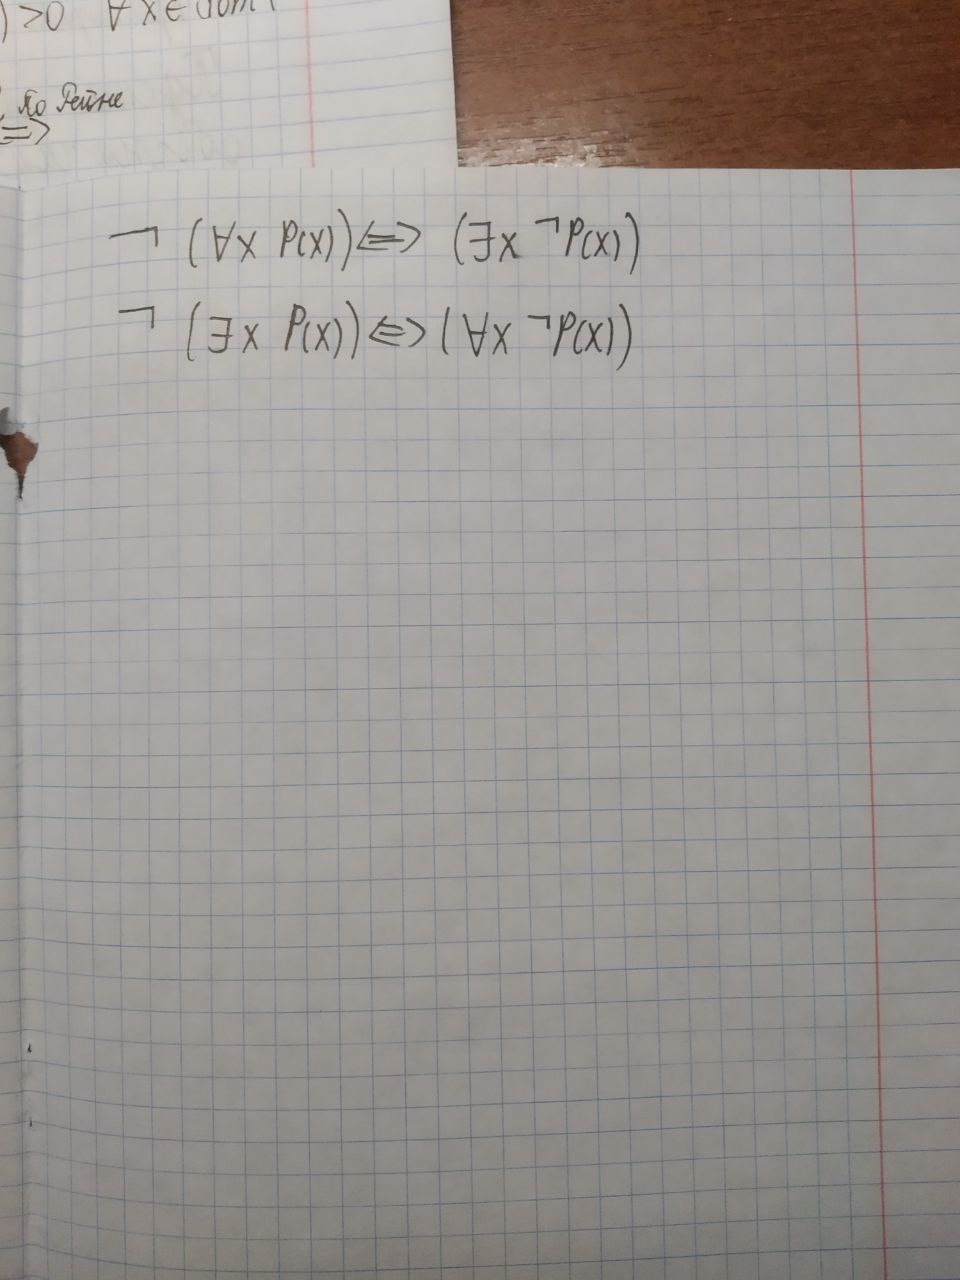 ) >0 ∀ x ∈ dom f
по Гейне
⟺
¬ (∀x P(x)) ⟺ (∃x ¬P(x))
¬ (∃x P(x)) ⟺ (∀x ¬P(x))